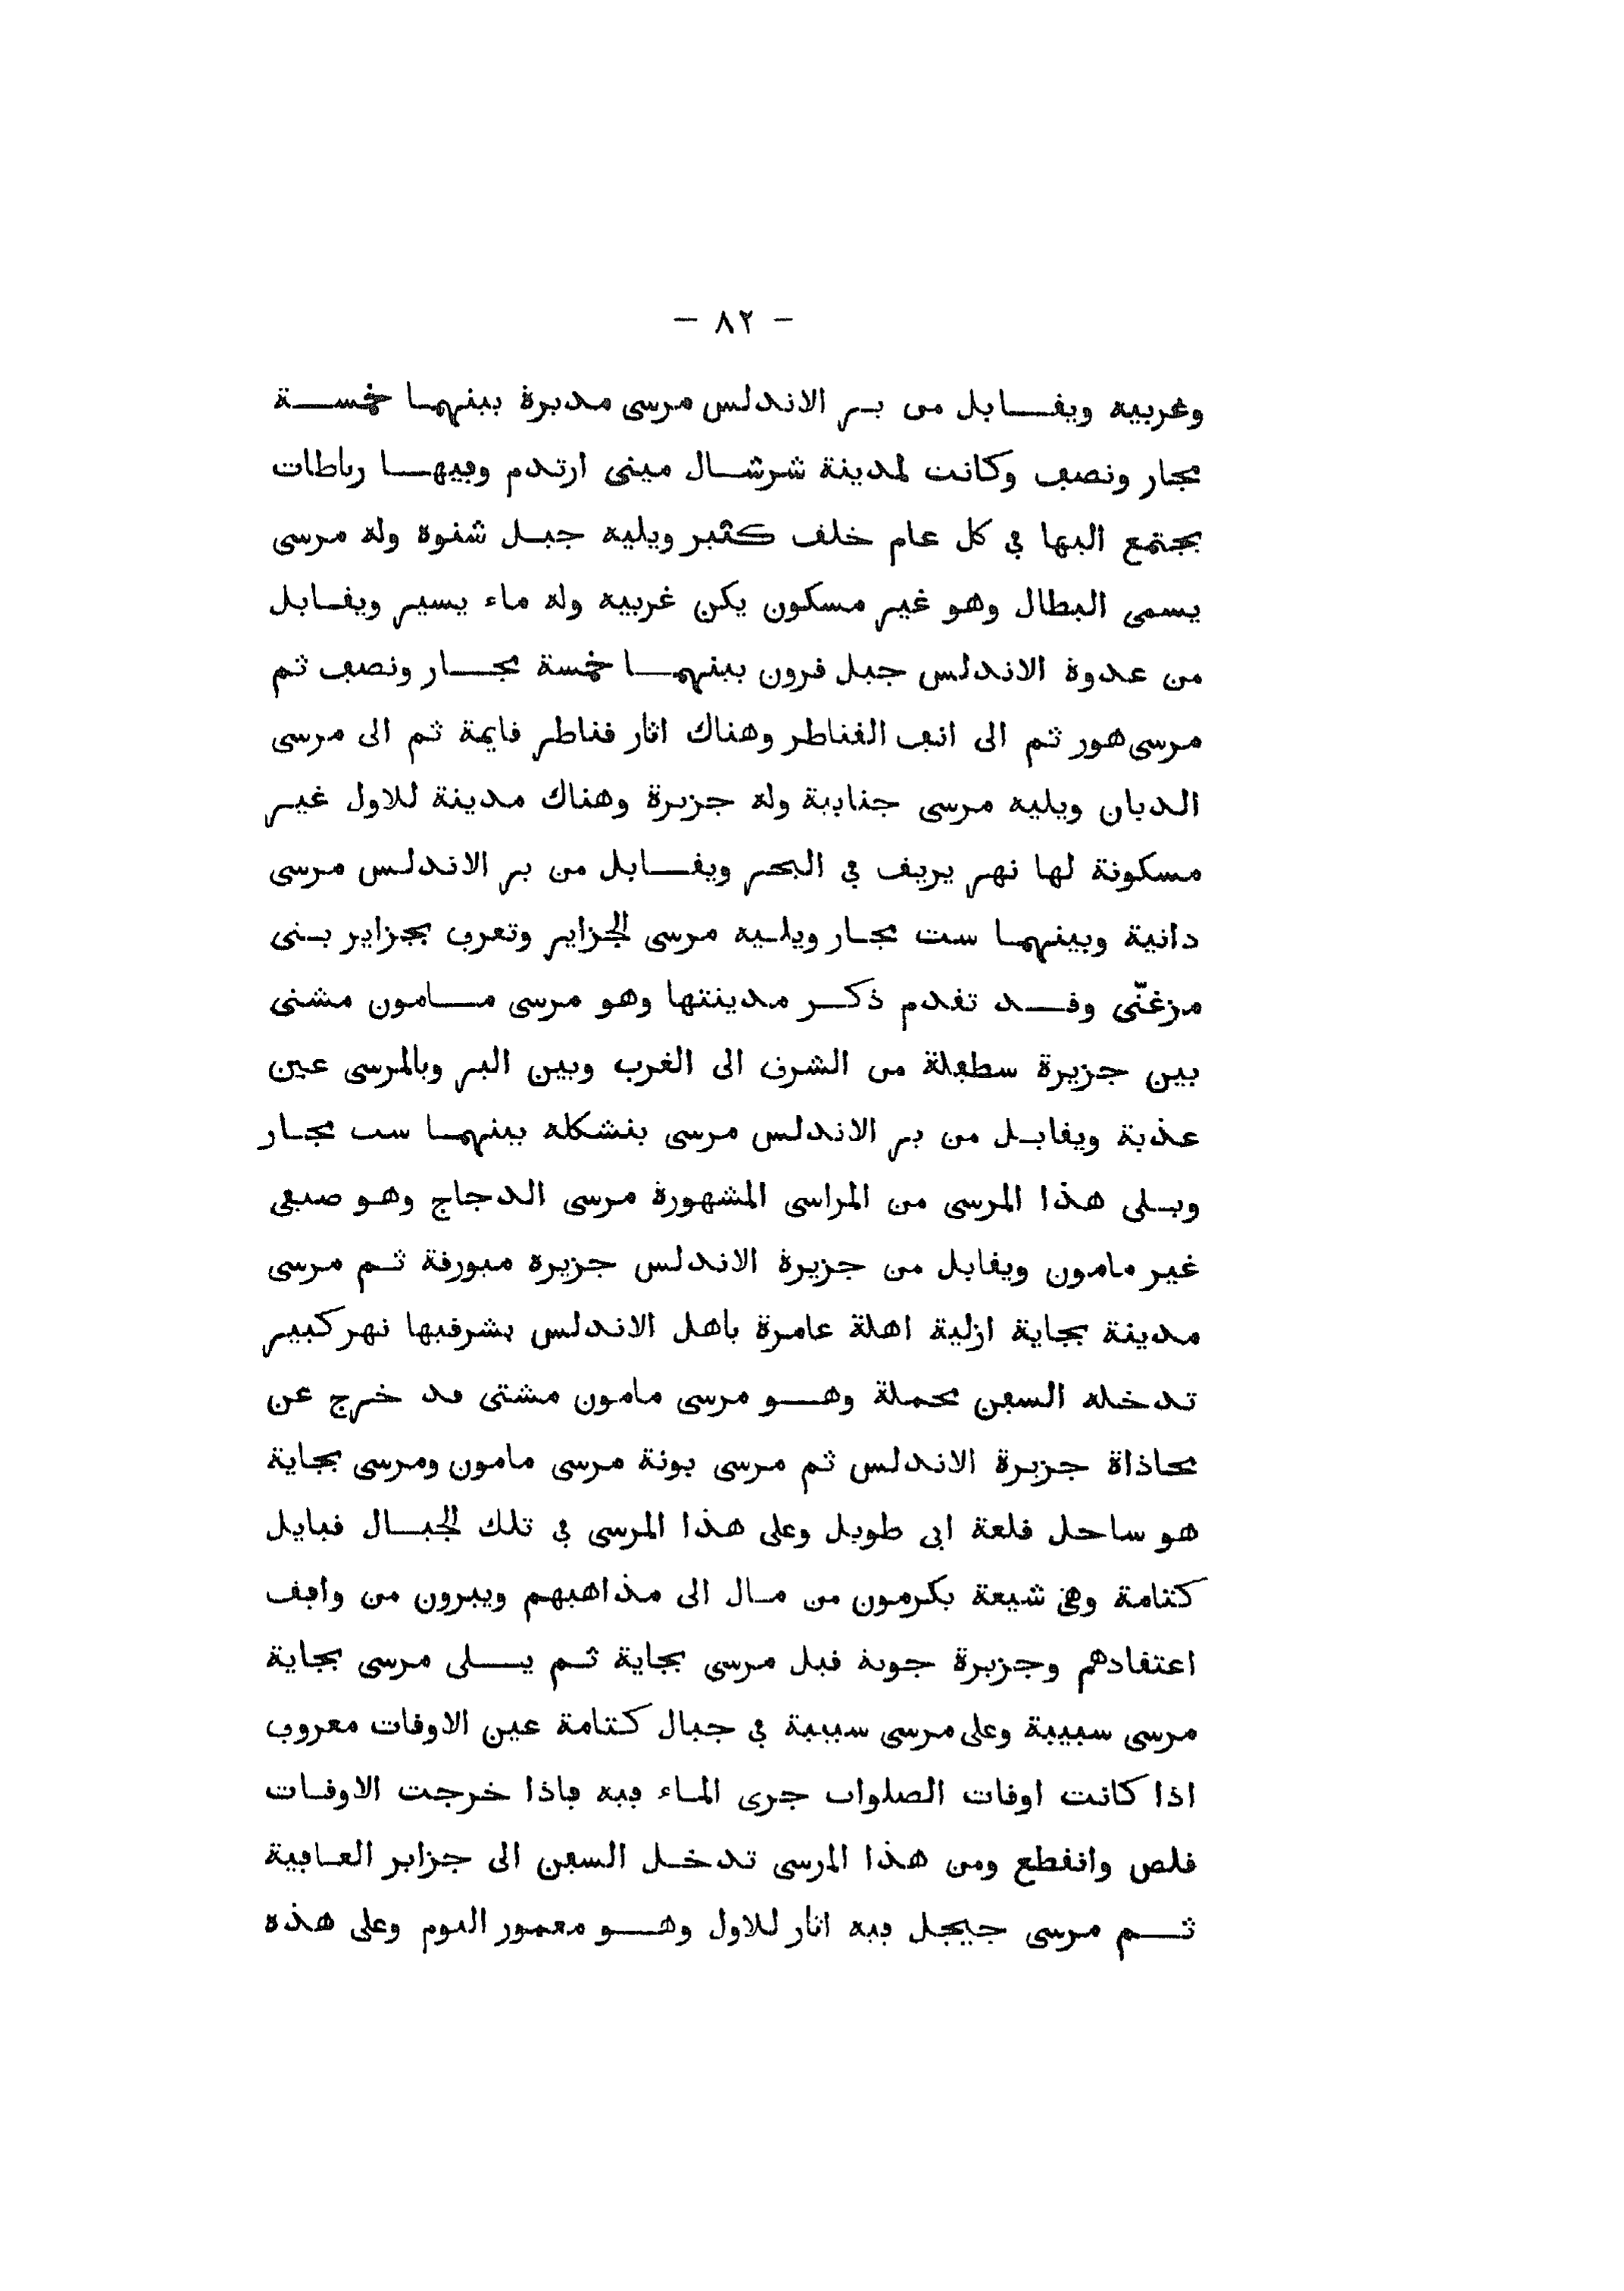 - ٨٢ -
وغربيه ويڧابل من بر الاندلس مرسى مدبرة بينهما خمسة
مجار ونصڢ وكانت لمدينة شرشال مينى ارتدم وڢيها رباطات
يجتمع اليها ڢي كل عام خلڧ كثير ويليه جبل شنوة وله مرسى
يسمى البطال وهو غير مسكون يكن غربيه وله ماء يسير ويڧابل
من عدوة الاندلس جبل ڧرون بينهما خمسة مجار ونصڢ ثم
مرسى هور ثم الى انڢ الڧناطر وهناك اثار ڧناطر ڧايمة ثم الى مرسى
الدبان ويليه مرسى جنابية وله جزيرة وهناك مدينة للاول غير
مسكونة لها نهر يريڧ ڢي البحر ويڧابل من بر الاندلس مرسى
دانية وبينهما ست مجار ويليه مرسى الجزاير وتعرڢ بجزاير بنى
مزغنّى وڧد تڧدم ذكر مدينتها وهو مرسى مامون مشتى
بين جزيرة سطڢلة من الشرڧ الى الغرب وبين البر وبالمرسى عين
عذبة ويڧابل من بر الاندلس مرسى بنشكله بينهما ست مجار
ويلى هذا المرسى من المراسى المشهورة مرسى الدجاج وهو صيڢى
غير مامون ويڧابل من جزيرة الاندلس جزيرة ميورڧة ثم مرسى
مدينة بجاية ازلية اهلة عامرة باهل الاندلس بشرڧيها نهر كبير
تدخله السڢن محملة وهو مرسى مامون مشتى ڧد خرج عن
محاذاة جزيرة الاندلس ثم مرسى بونة مرسى مامون ومرسى بجاية
هو ساحل ڧلعة ابى طويل وعلى هذا المرسى ڢي تلك الجبال ڧبايل
كتامة وهم شيعة يكرمون من مال الى مذاهبهم ويبرون من واڢڧ
اعتڧادهم وجزيرة جوبة ڧبل مرسى بجاية ثم يلى مرسى بجاية
مرسى سبيبة وعلى مرسى سبيبة ڢي جبال كتامة عين الاوڧات معروڢ
اذا كانت اوڧات الصلوات جرى الماء ڢيه ڢاذا خرجت الاوڧات
ڧلص وانڧطع ومن هذا المرسى تدخل السڢن الى جزاير العاڢية
ثم مرسى جيجل ڢيه اثار للاول وهو معمور اليوم وعلى هذه